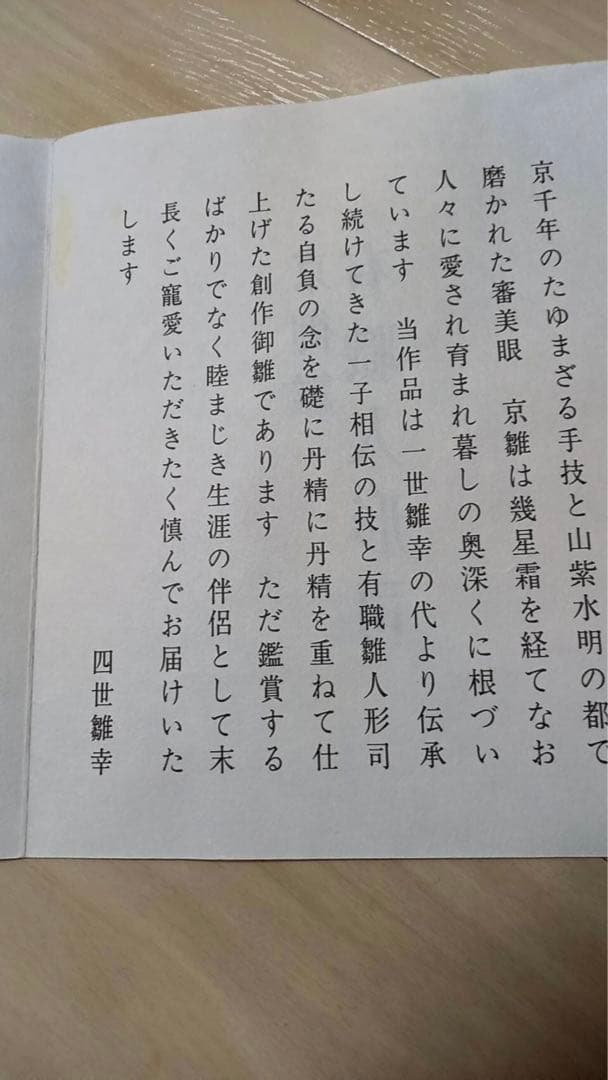 京千年のたゆまざる手技と山紫水明の都で
磨かれた審美眼　京雛は幾星霜を経てなお
人々に愛され育まれ暮しの奥深くに根づい
ています　当作品は一世雛幸の代より伝承
し続けてきた一子相伝の技と有職雛人形司
たる自負の念を礎に丹精に丹精を重ねて仕
上げた創作御雛であります　ただ鑑賞する
ばかりでなく睦まじき生涯の伴侶として末
長くご寵愛いただきたく慎んでお届けいた
します
四世雛幸